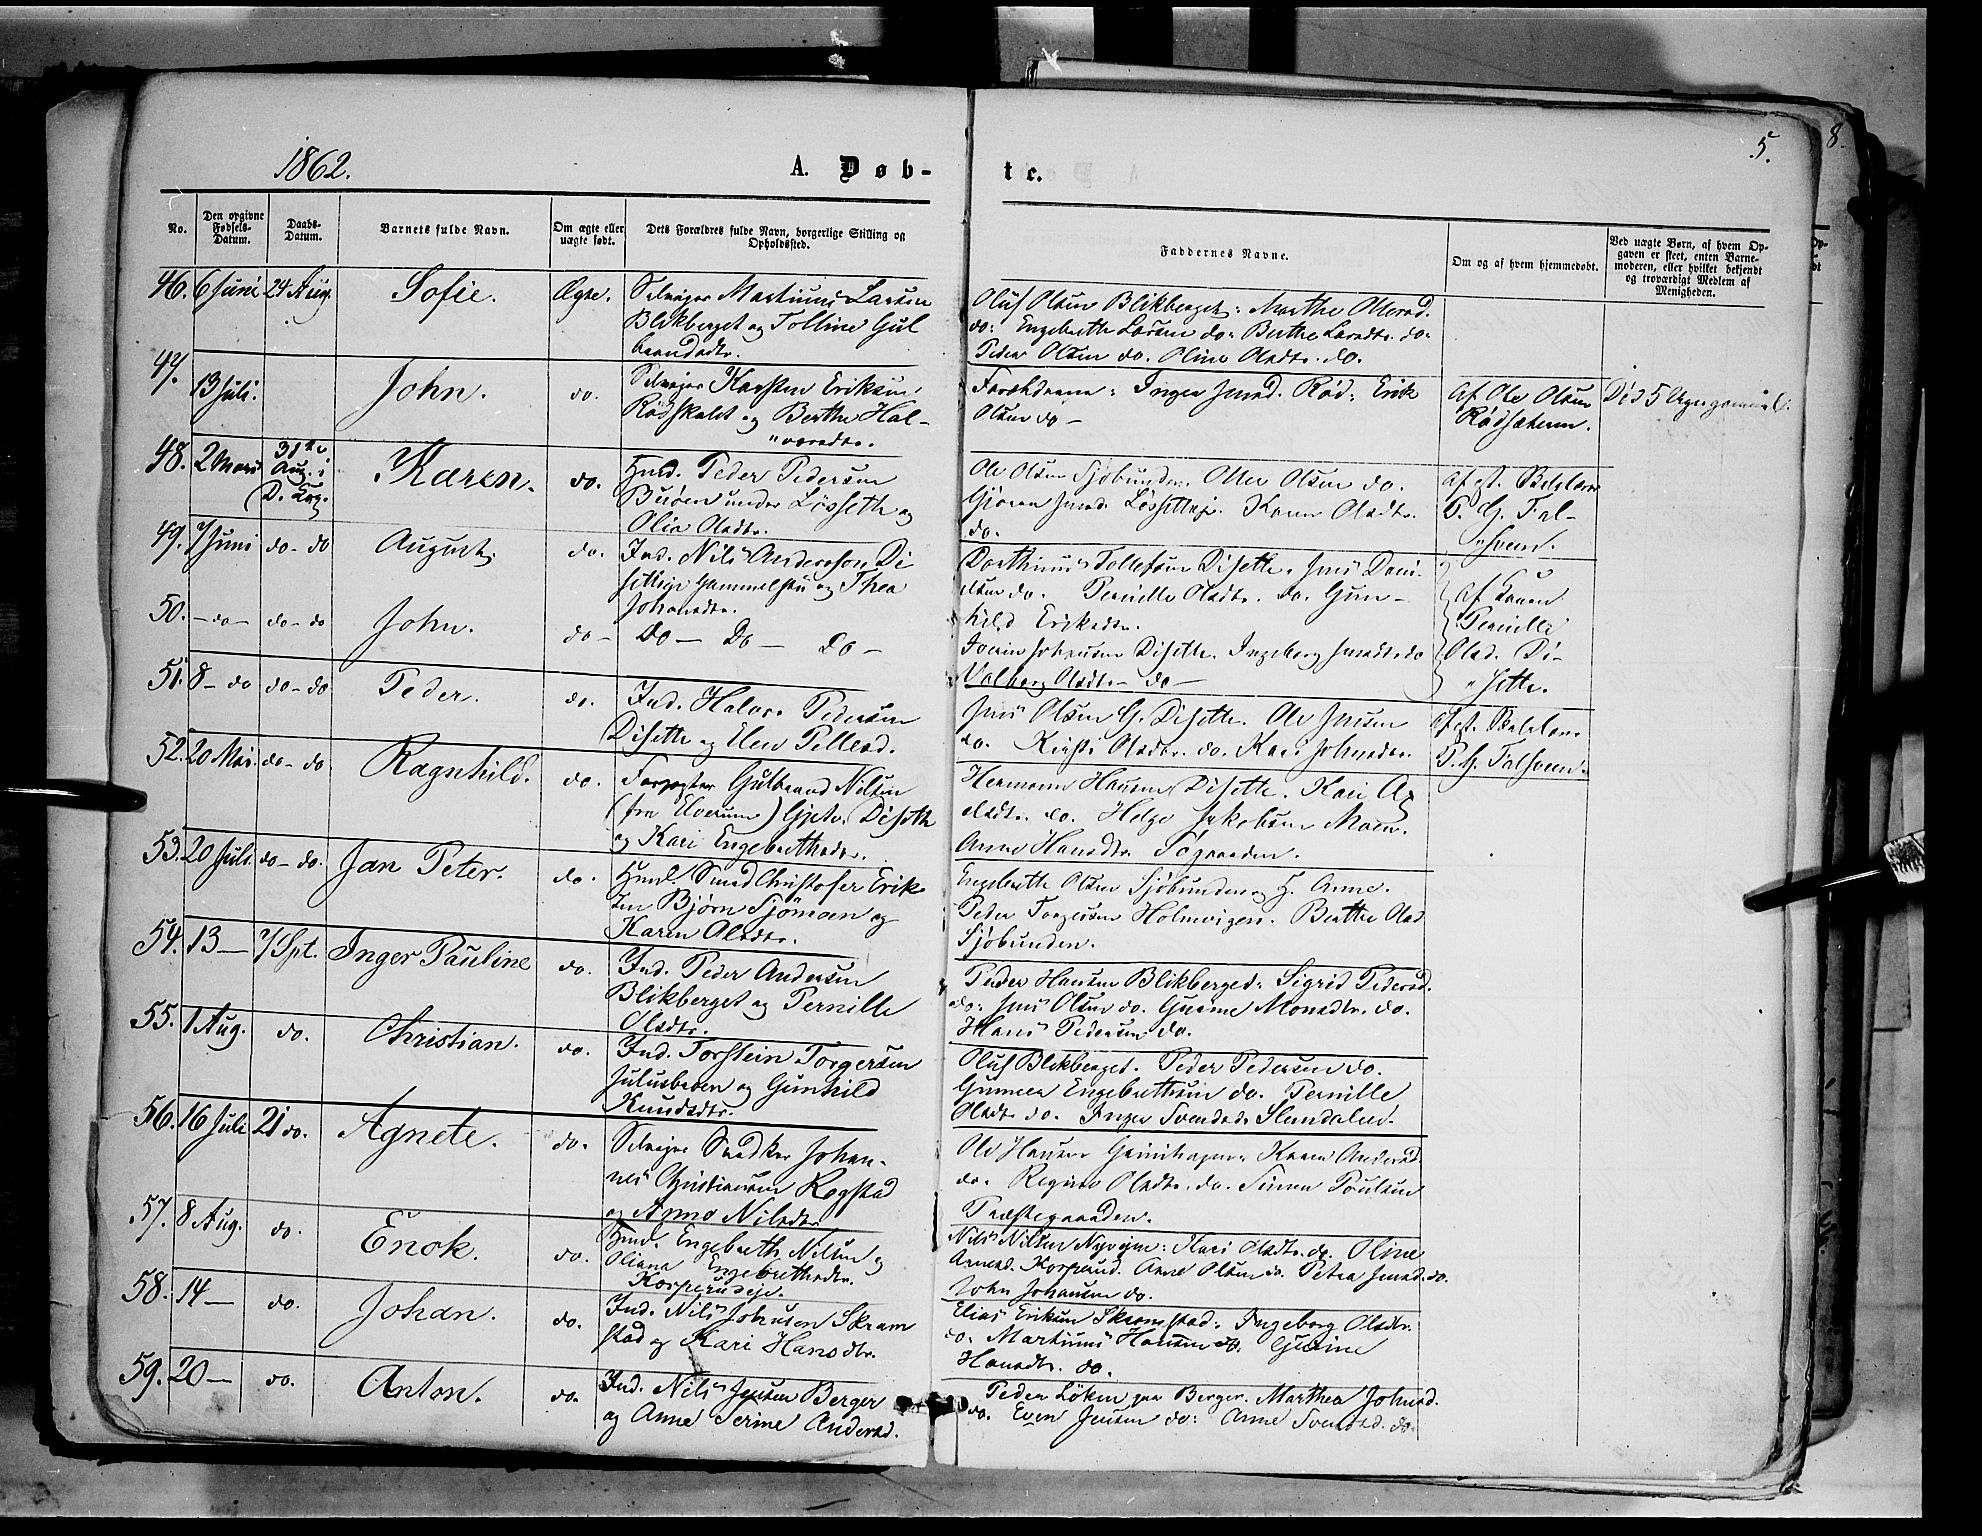 1862.
A. Døb-
te.
5.
8.
No.
Den opgivne Fødsels-Datum.
Daabs-Datum.
Barnets fulde Navn.
Om ægte eller uægte født.
Dets Forældres fulde Navn, borgerlige Stilling og Opholdssted.
Faddernes Navne.
Om og af hvem hjemmedøbt.
Ved uægte Børn, af hvem Op-
gaven er skeet, enten Barne-
moderen, eller hvilket bekjendt
og troværdigt Medlem af
Menigheden.
46. 6 Juni 24 Aug. Sofie. Ægte. Selveier Martinus Larsen
Blikberget ogOlline Gul
brandsdtr.
Oluf Olsen Blikberget: Marthe Olesd.
do: Engebreth Larsen do: Berthe Larsdtr. do:
Peder Olsen do. Oline Olsdtr. do.
47. 13 Juli. John. do. Selveier Karsten Eriksen
Rødskalet og Berthe Hal-
"vorsdtr.
Forældrene: Inger Jensd. Rød: Erik
Olsen do -
af Ole Olsen
Rødsæteren.
Død 5 Uger gammel.
48. 2 Mars 31te Aug. i D. Kog. Karen. do. Husd. Peder Pedersen
Buåen under Løssette og
Olia Olsdtr.
Ole Olsen Sjøbunden. Otter Olsen do.
Gjøran Jensd. Løssetteje. Karen Olsdtr.
do.
af st. Skolelærer
P. G. Fal-
"sveen.
49. 7 Juni do- do August. do. Ind. Nils Andersson Di
setteje Gammelstu og Thea
Johansdtr.
Dorthinus Tollefsen Disette. Jens Dani-
elsen do. Pernille Olsdtr. do. Gun-
hild Eriksdtr.
af Konen
Pernille
Olsd. Di-
"sette.
50. - do - do- do John. do - Do - Do - Do -
Joen Johansen Disette. Ingeborg Jensdtr. do
Valborg Olsdtr - do -
51. 8 - do do - do Peder. do. Ind. Halvor Pedersen
Disette og Elen Pellesd.
Jens Olsen G. Disette. Ole Jensen
do. Kirsti Olsdtr. do. Kari Johnsdtr.
af st. Skolelær.
P. G. Falsveen.
52. 20 Mai. do - do Ragnhild. do. Forpagter Gulbrand Nilsen
(fra Elverum) Gjetv. Disette
og Kari Engebrethsdtr.
Hermann Hansen Disette. Kari Ax
elsdtr. do. Helge Jakobsen Moen.
Anne Hansdtr. Søgaarden.
53. 20 Juli. do - do. Jan Peter. do. Husd. Smed Christofer Erik
sen Bjørn Sjömoen og
Karen Olsdtr.
Engebreth Olsen Sjöbunden og H. Anne.
Peder Torgersen Holmvigen. Berthe Olsd
Sjöbunden.
54. 13 - 7 Spt. Inger Pauline do. Ind. Peder Andersen
Blikberget og Pernille
Olsdtr.
Peder Hansen Blikberged: Sigrid Pedersd.
do: Jens Olsen do. Gurine Monsdtr. do.
Hans Pedersen do.
55. 1 Aug. do. Christian. do. Ind. Torstein Torgersen
Julusbroen og Gunhild
Knudsdtr.
Oluf Blikberget. Peder Pedersen do.
Gunner Engebrethsen do. Pernille
Olsdtr do. Inger Svendsdr Stendalen.
56. 16 Juli 21 do. Agnete. do. Selveier Snedker Johan-
nes Christiansen Rogstad
og Anne Nilsdtr.
Ole Hansen Grinihagen: Karen Andersd.
do. Regine Olsdtr. do. Simen Poulsen
Præstegaarden.
57. 8 Aug. do. Enok. do. Husd. Engebreth Nilsen og
Oliana Engebrethsdtr.
Korperudeje.
Nils Nilsen Nyveien: Kari Olsdtr. do. Oline
Arnesd. Korperud. Anne Olsen do. Petra Jensd. do.
John Johansen do.
58. 14 - do. Johan. do. Ind. Nils Johnsen Skram
stad og Kari Hansdtr.
Elias Eriksen Skramstad: Ingeborg Olsdtr.
do. Martinus Hansen do. Gurine
Hansdtr. do.
59. 20 - do. Anton. do. Ind. Nils Jensen Berger
og Anne Terine Andersd.
Peder Løken paa Berger. Marthea Johnsd.
do. Even Jensen do: Anne Svendsd. do.